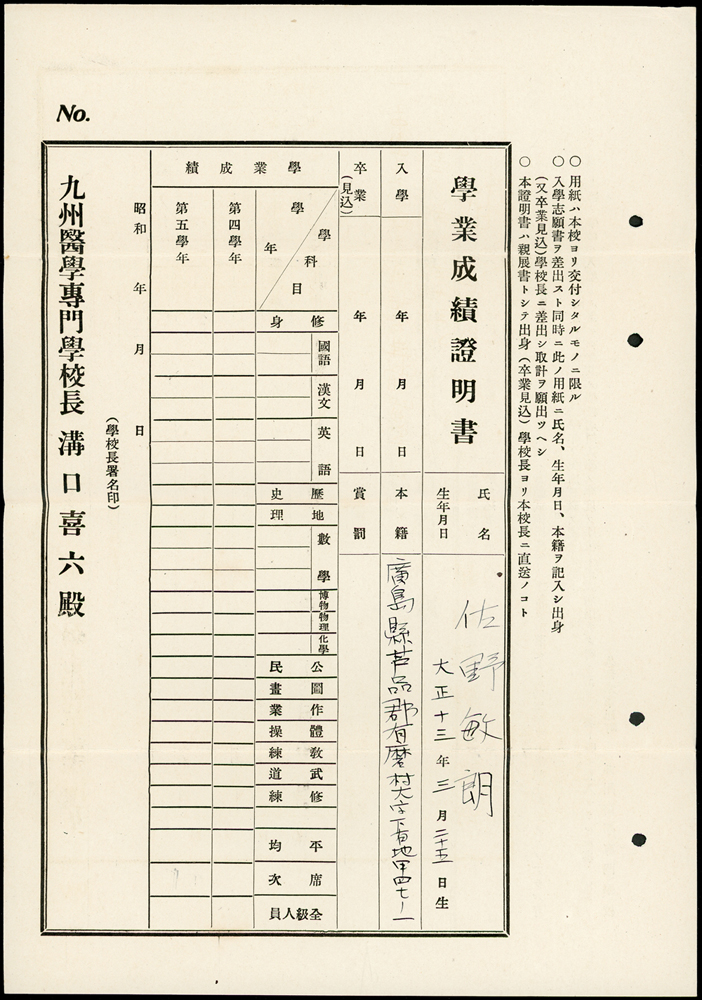 No.
○ 用紙ハ本校ヨリ交付シタルモノニ限ル
○ 入學志願書ヲ差出スト同時ニ此ノ用紙ニ氏名、生年月日、本籍ヲ記入シ出身
(又卒業見込)學校長ニ差出シ取計ヲ願出ツヘシ
○ 本證明書ハ親展書トシテ出身(卒業見込)學校長ヨリ本校長ニ直送ノコト
學業成績證明書
氏名
佐野敏朗
生年月日
大正十三年三月二十五日生
入學 年 月 日
本籍
廣島縣芦品郡有磨村大字下有地甲四七ノ一
卒業(見込) 年 月 日
賞罰
學業成績
學科目
學年
修身
國語
漢文
英語
歷史
地理
數學
博物
物理
化學
公民
圖畫
作業
體操
教練
武道
修練
平均
席次
全級人員
第四學年
第五學年
昭和 年 月 日
(學校長署名印)
九州醫學專門學校長 溝口喜六殿